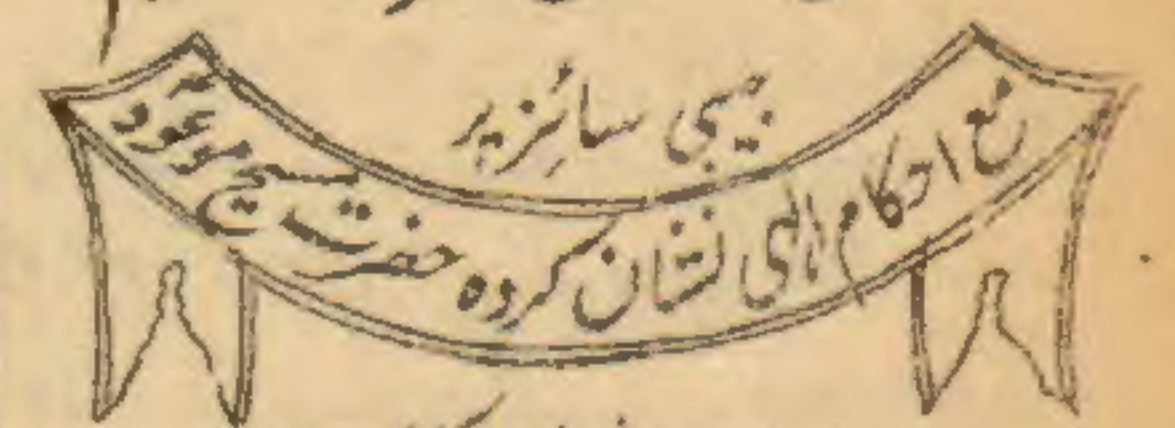 جیبی سائز پر
مع احکام الہی نشان کردہ حضرت مسیح موعود